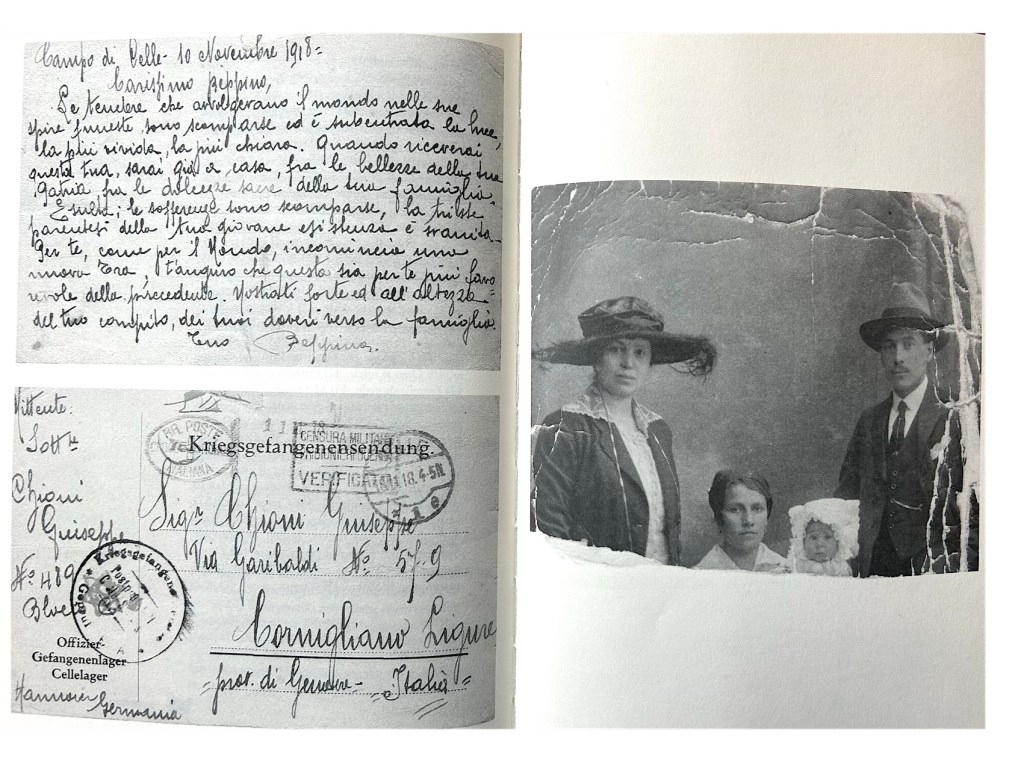 Campo di Celle - 10 Novembre 1918 =
Carissimo Peppino,
Le tenebre che avvolgevano il mondo nelle sue
spire funeste sono scomparse ed è subentrata la luce,
la più vivida, la più chiara. Quando riceverai
questa tua, sarai già a casa, fra le bellezze della tua
Patria, fra le dolcezze sacre della tua famiglia.
Esulta; le sofferenze sono scomparse, la triste
parentesi della tua giovane esistenza è svanita.
Per te, come per il Mondo, incomincia una
nuova Era, t'auguro che questa sia per te più favo
revole della precedente. Mostrati forte ed all'altezza
del tuo compito, dei tuoi doveri verso la famiglia.
Tuo Peppino.
Mittente:
Sott.
Chioni
Guiseppe
N° 489
Offizier-
Gefangenenlager
Cellelager
Hannover
Germania
POSTE
ITALIANA
Kriegsgefangenensendung.
CENSURA MILITARE
PRIGIONIERI GUERRA
VERIFICATO
11.18.4-5N
Sigr Chioni Guiseppe
Via Garibaldi N° 57.9
Cornigliano Ligure
prov. di Genova - Italia
Kriegsgefangenen